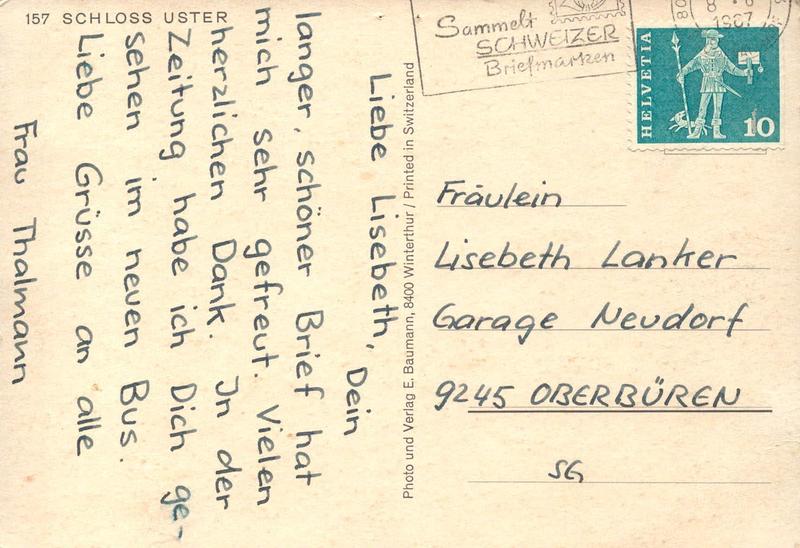 157 SCHLOSS USTER
Liebe Lisebeth, Dein
langer, schöner Brief hat
mich sehr gefreut. Vielen
herzlichen Dank. In der
Zeitung habe ich Dich ge-
sehen im neuen Bus.
Liebe Grüsse an alle
Frau Thalmann
Photo und Verlag E. Baumann, 8400 Winterthur / Printed in Switzerland
Sammelt
SCHWEIZER
Briefmarken
1967
HELVETIA
10
Fräulein
Lisebeth Lanker
Garage Neudorf
9245 OBERBÜREN
SG